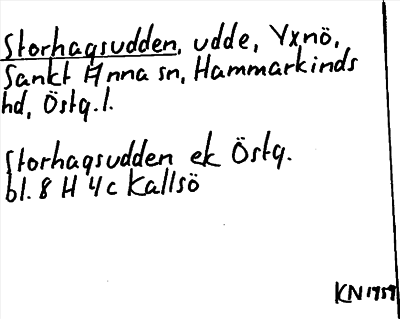 Storhagsudden, udde, Yxnö,
Sankt Anna sn, Hammarkinds
hd, Östg.l.
Storhagsudden ek Östg.
bl. 8 H 4c Kallsö
KN 1959